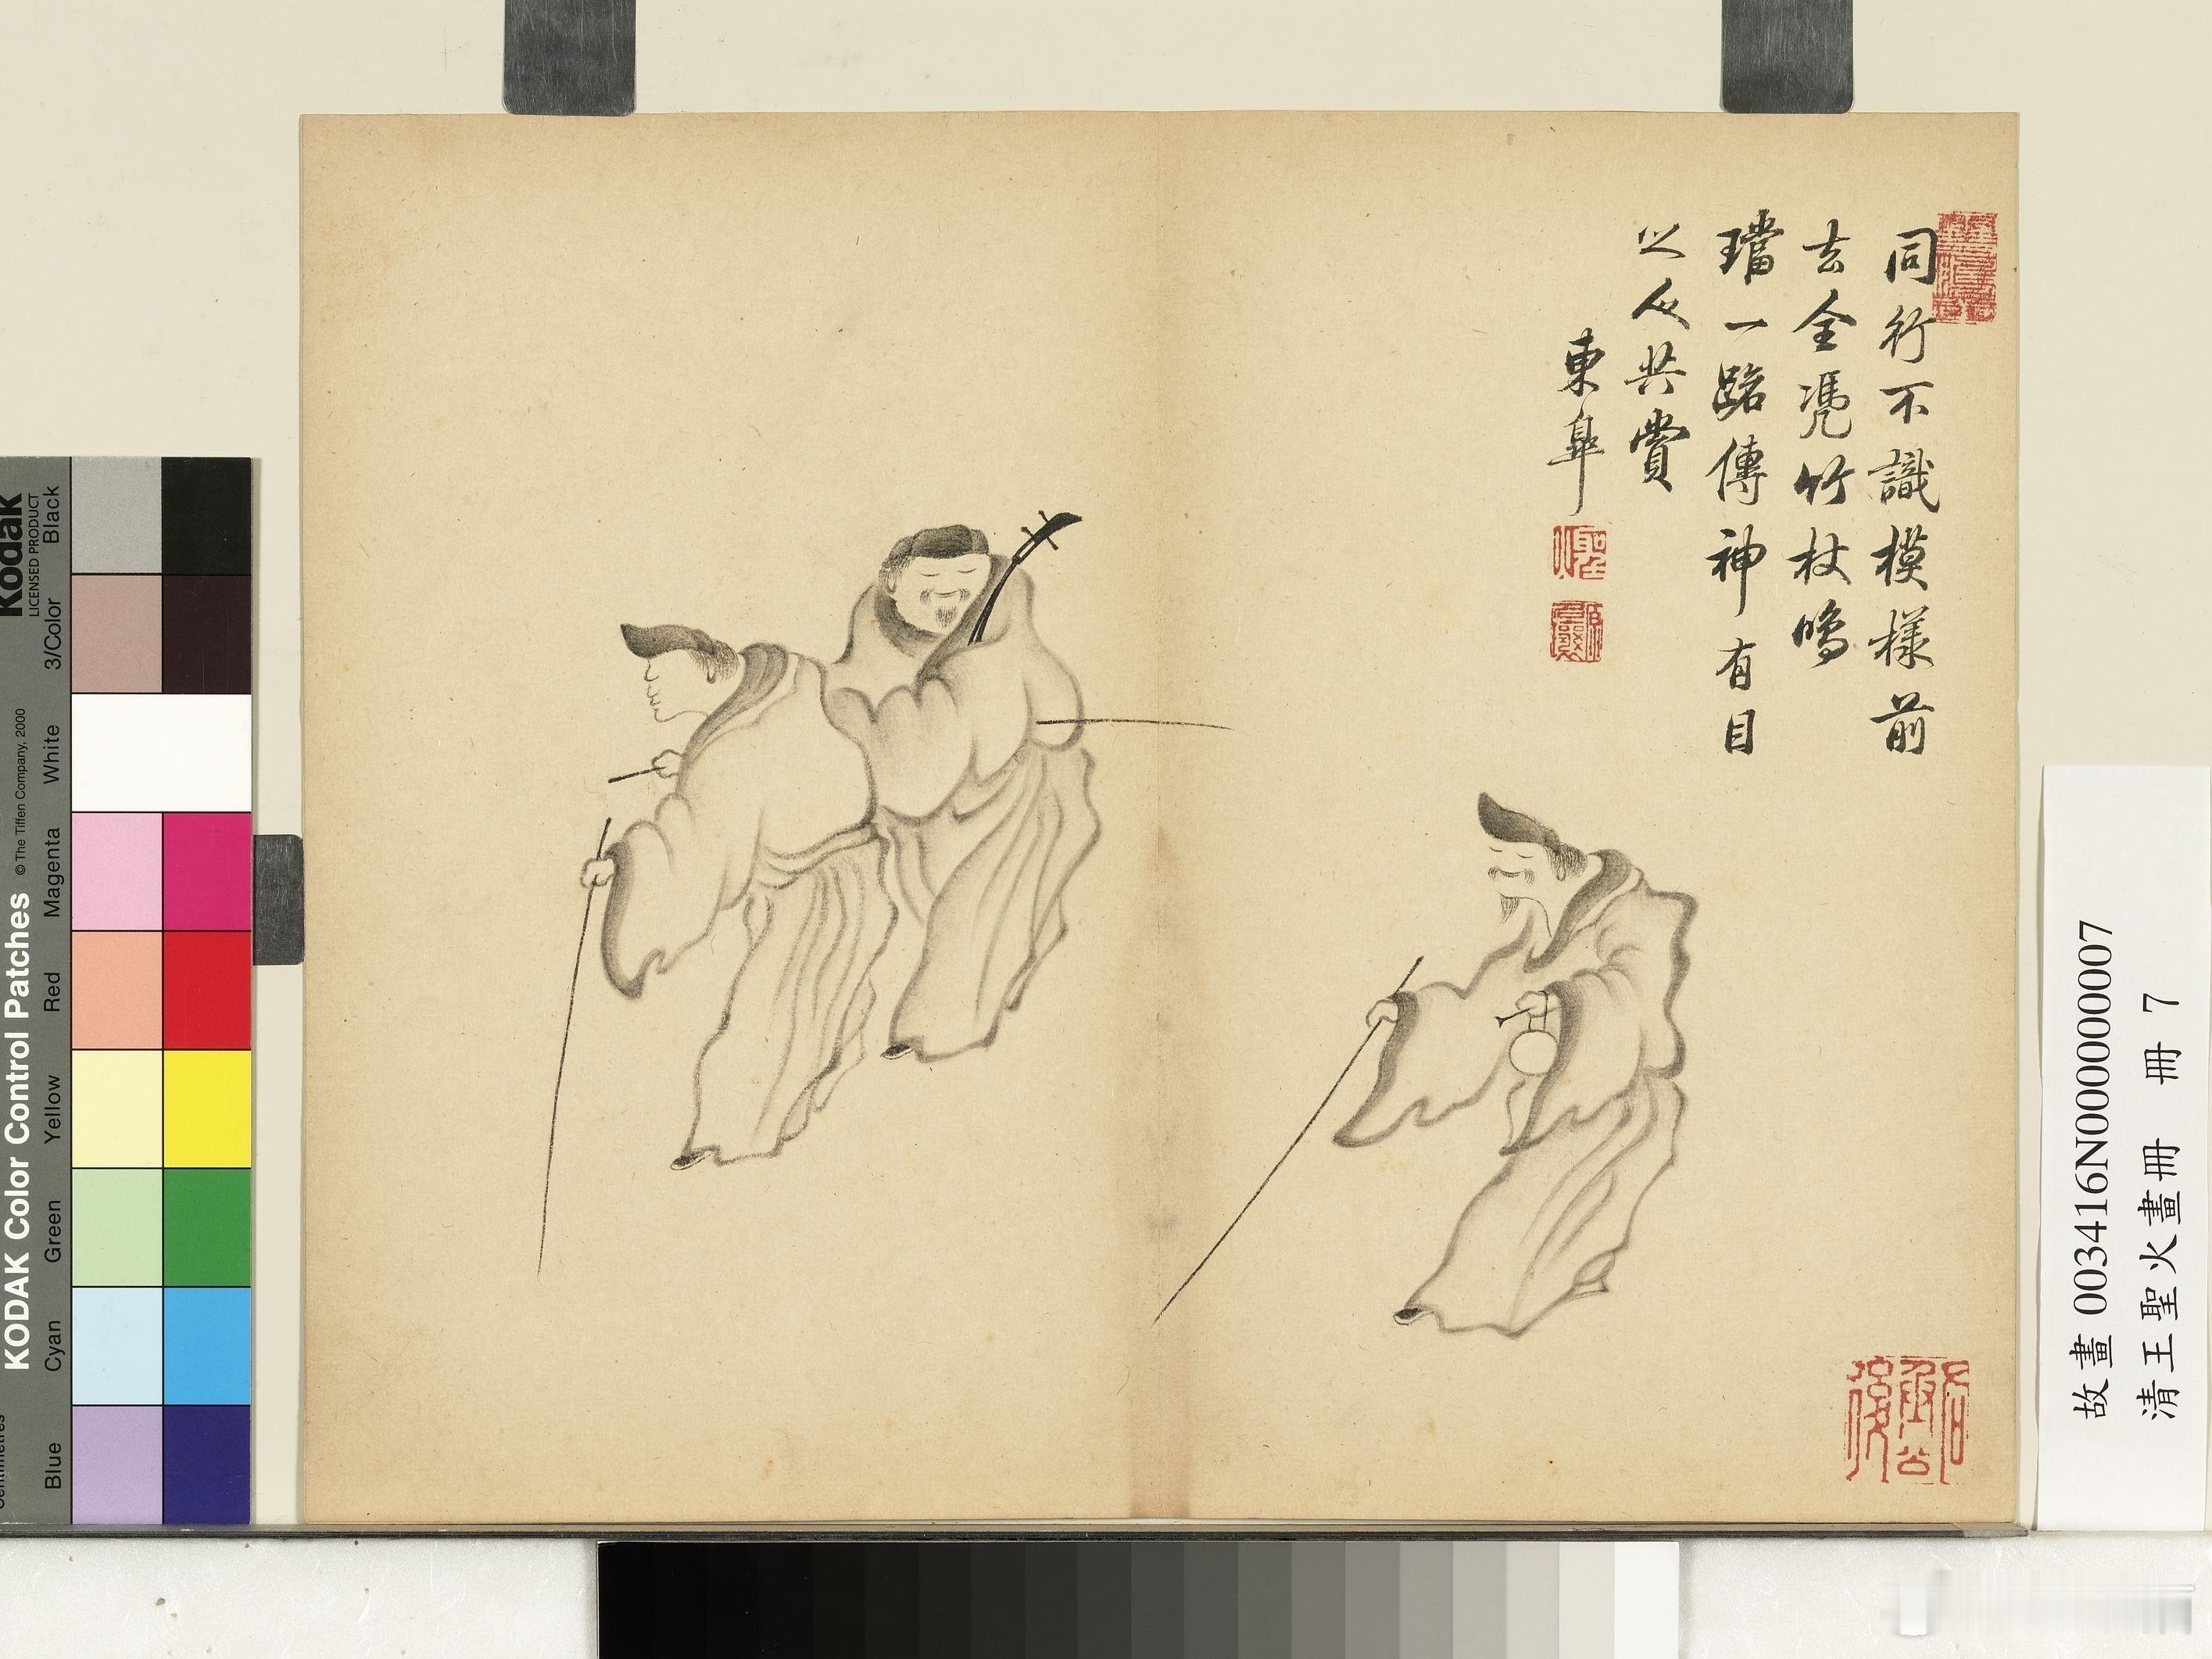 同行不識模樣前
去全憑竹杖鳴
璫一路傳神有目
之人共賞
東皐
故畫 003416N000000007
清王聖火畫冊 冊 7
Kodak
LICENSED PRODUCT
KODAK Color Control Patches
© The Tiffen Company, 2000
Blue
Cyan
Green
Yellow
Red
Magenta
White
3/Color
Black